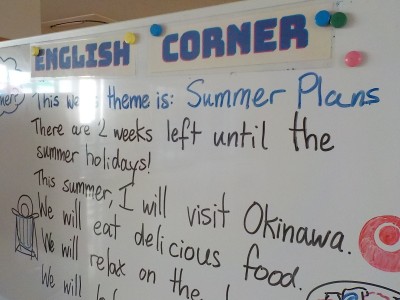 ENGLISH CORNER
This theme is: Summer Plans
There are 2 weeks left until the
summer holidays!
This summer, I will visit Okinawa.
We will eat delicious food.
We will relax on the
We will